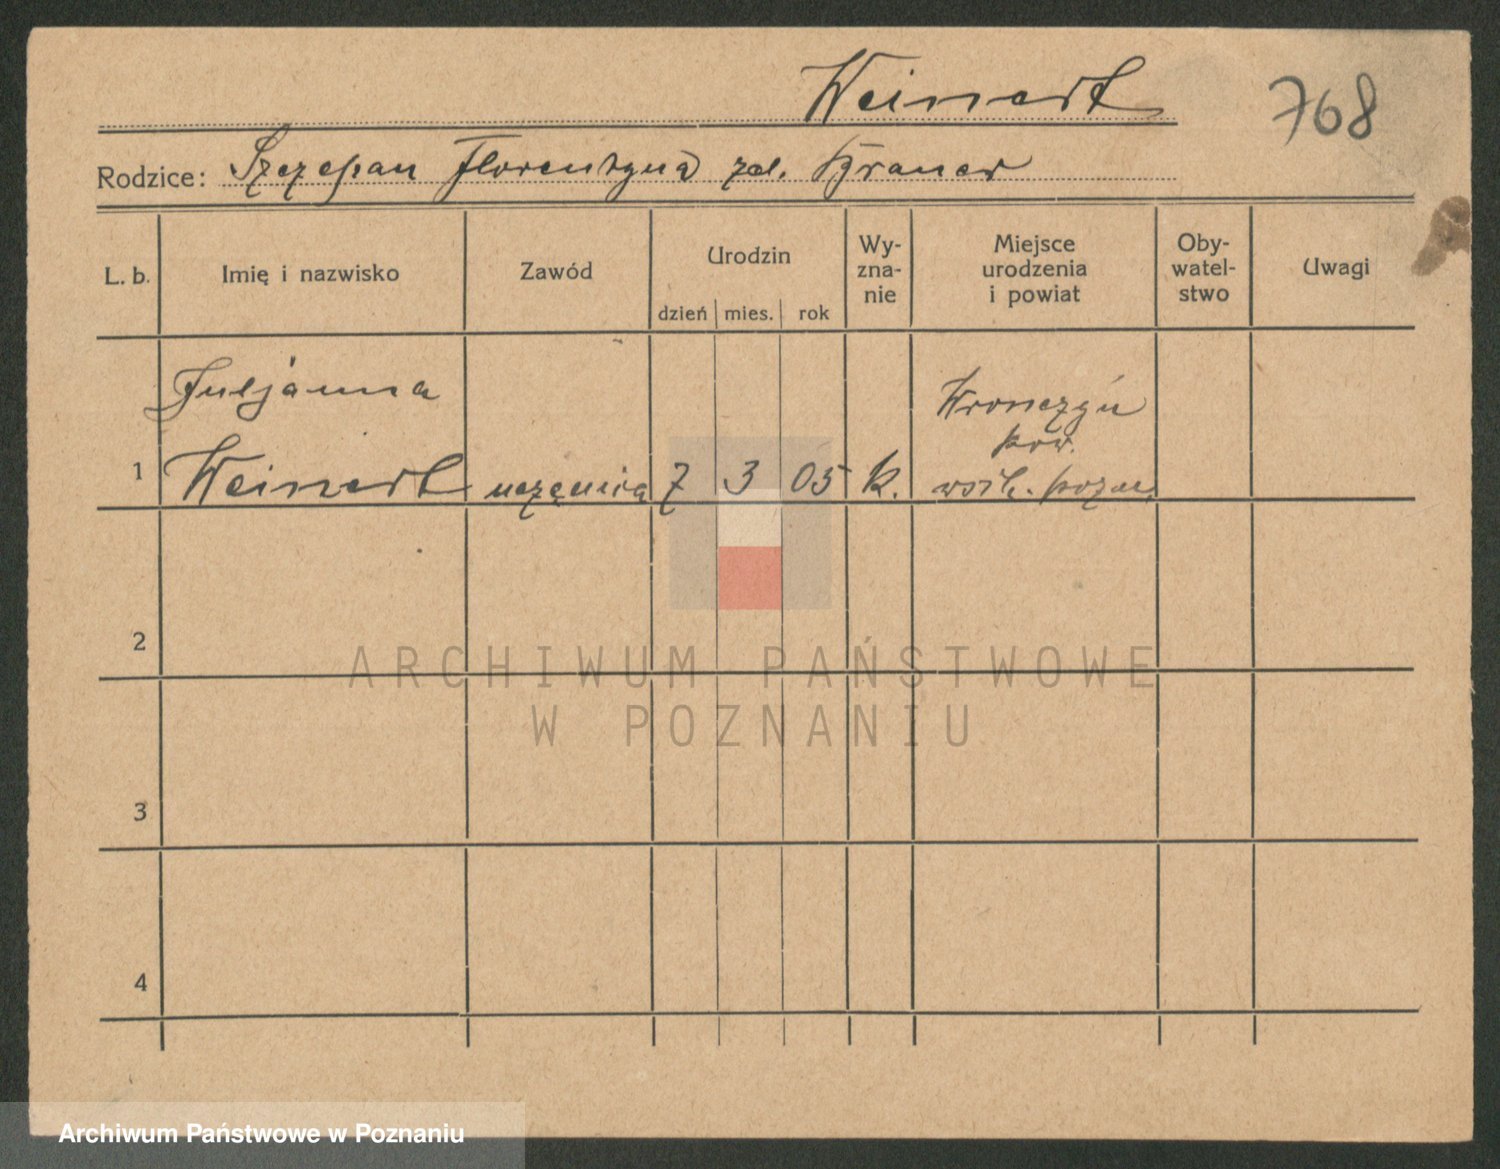 Weinert
768
Rodzice: Szczepan Florentyna zd. Kraner
L. b.
Imię i nazwisko
Zawód
Urodzin
dzień mies. rok
Wy-
zna-
nie
Miejsce
urodzenia
i powiat
Oby-
watel-
stwo
Uwagi
Juljanna
Wronczyn
pow.
1 Weinert uczenica 7 3 05 k. wsch. pozn.
2
ARCHIWUM PAŃSTWOWE
W POZNANIU
3
4
Archiwum Państwowe w Poznaniu